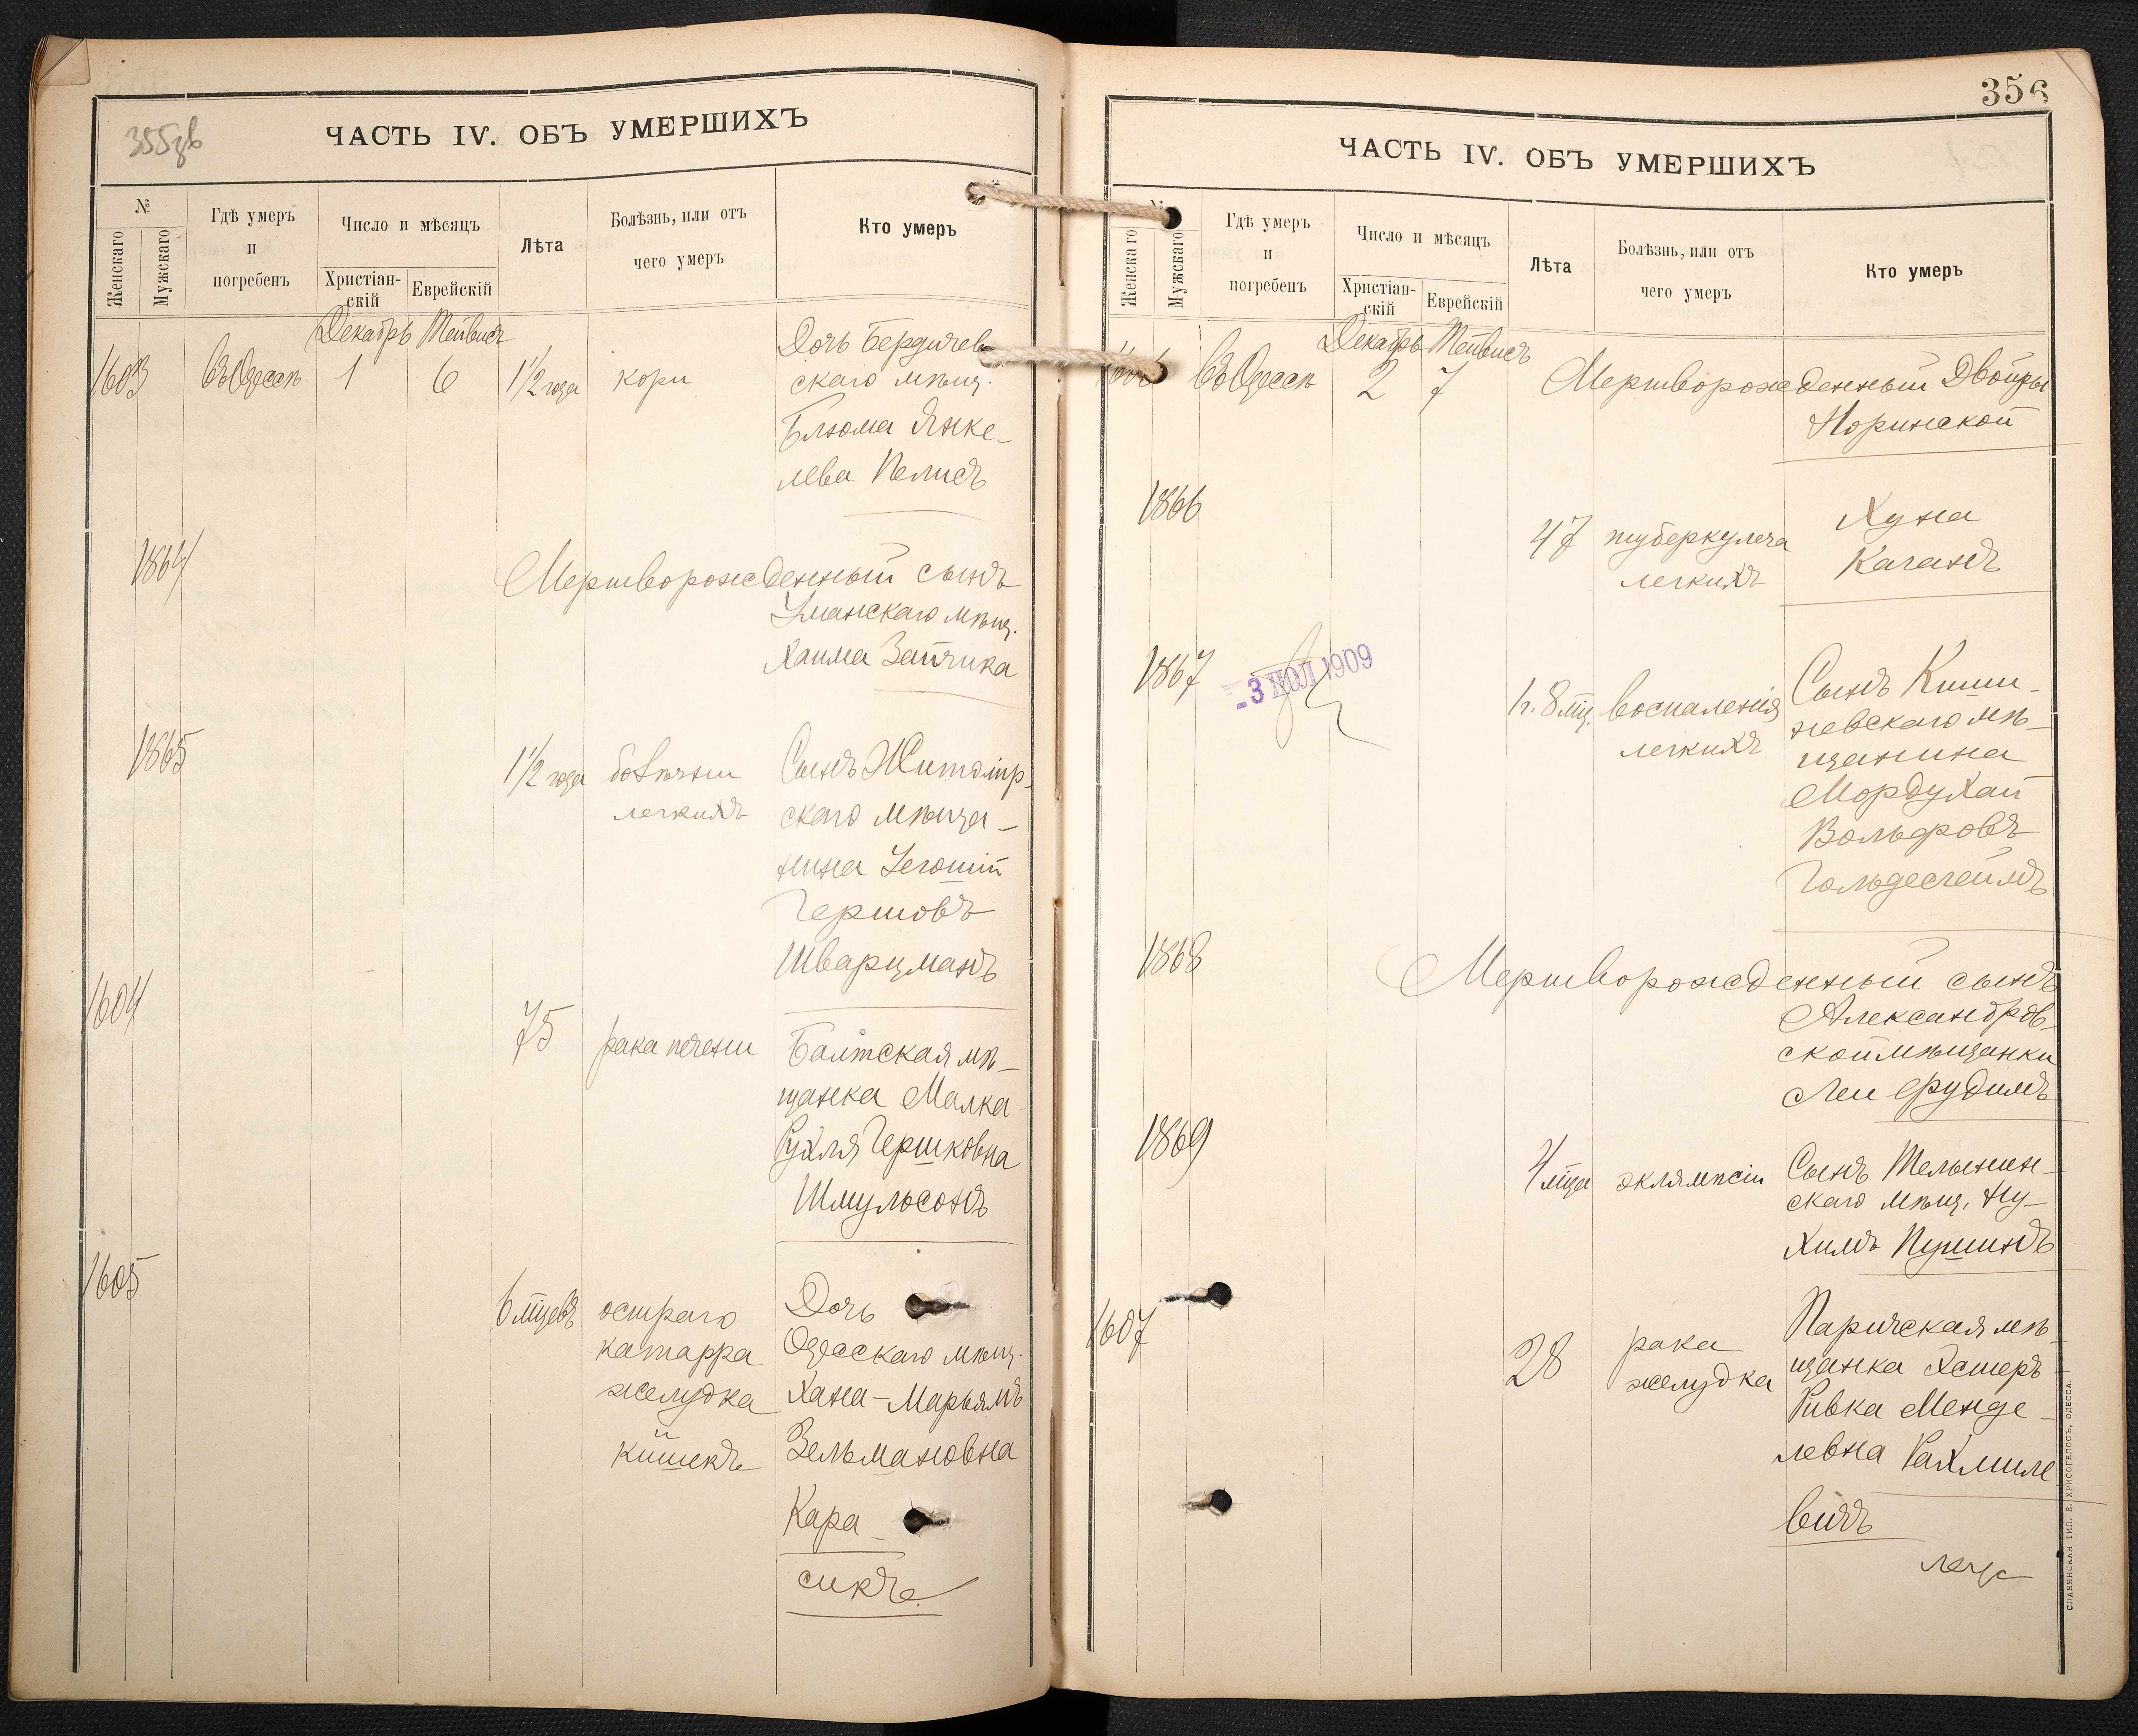 355зв
ЧАСТЬ IV. ОБЪ УМЕРШИХЪ
№
Женскаго
Мужскаго
Гдѣ умеръ
и
погребенъ
Число и мѣсяцъ
Христіан-
скій
Еврейскій
Лѣта
Болѣзнь, или отъ
чего умеръ
Кто умеръ
Декабрь Тейвисъ
1603 въ Одессѣ 1 6 1½ года кори
Дочь Бердичев
скаго мѣщ.
Блюма Янке-
лева Пелисъ
1864 Мертворожденный сынъ
Уманскаго мѣщ.
Хаима Зайчика
1865 1½ года легкихъ
Сынъ Житомір
скаго мѣща-
нина
Гершовъ
Шварцманъ
1604 75 рака печени
Балтская мѣ-
щанка Малка
Рухля Гершковна
Шмульсонъ
1605 6 мцевъ остраго
катарра
желудка
кишекъ
Дочь
Одесскаго мѣщ.
Хана-Марьямъ
Зельмановна
Кара-
сикъ
356
ЧАСТЬ IV. ОБЪ УМЕРШИХЪ
№
Женскаго
Мужскаго
Гдѣ умеръ
и
погребенъ
Число и мѣсяцъ
Христіан-
скій
Еврейскій
Лѣта
Болѣзнь, или отъ
чего умеръ
Кто умеръ
Декабрь Тейвисъ
1606 въ Одессѣ 2 7 Мертворожденный Двойры
Норинской
1866 47 туберкулеза
легкихъ
Хуна
Каганъ
1867
-3 ІЮЛ 1909
1 г. 8 мц. воспаленія
легкихъ
Сынъ Киши-
невскаго мѣ-
щанина
Мордухай
Вольфовъ
1868 Мертворожденный сынъ
Александров-
ской мѣщанки
Леи
1869 4 мца эклямпсіи
Сынъ
скаго мѣщ. Ну-
химъ
1607 28 рака
желудка
Паричская мѣ-
щанка Эстеръ
Ривка Менде-
левна Рахмиле
вичъ
СЛАВЯНСКАЯ ТИП. Е. ХРИСОГЕЛОСЪ, ОДЕССА.